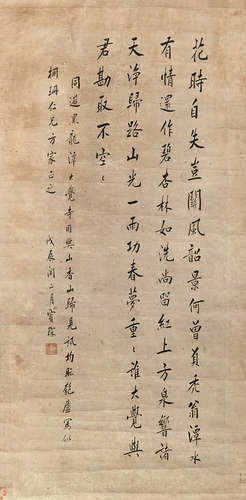 花時自失豈關風韶景何曾負禿翁潭水
有情還作碧杏林如洗尚留紅上方泉響諸
天淨歸路山光一雨功春夢重〻誰大覺與
君勘取不空〻
同遊黑龍潭大覺寺因與山香山歸見訊均用晚廬寫似
桐珊仁兄方家正之
戊辰閏二月寶琛